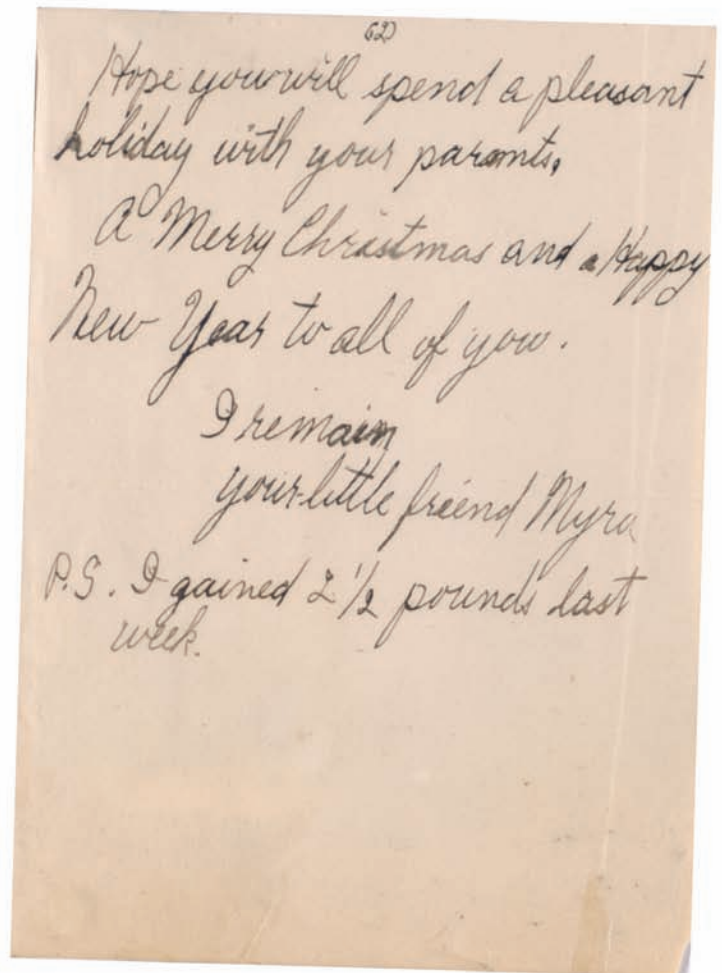 (2)
Hope you will spend a pleasant
holiday with your parents.
A Merry Christmas and a Happy
New Year to all of you.
I remain
your little friend Myra
P.S. I gained 2 1/2 pounds last
week.